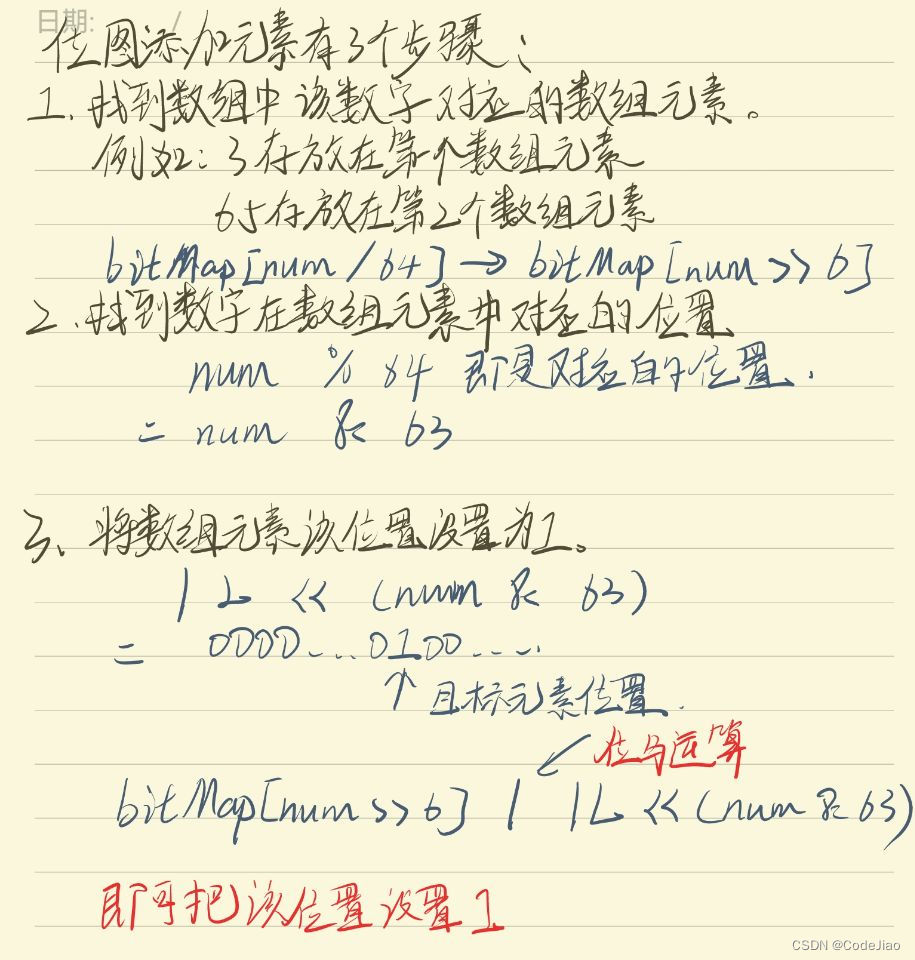 日期: /
位图添加元素有3个步骤;
1. 找到数组中该数字对应的数组元素。
例如:3存放在第1个数组元素
65存放在第2个数组元素
bitMap[num / 64] → bitMap[num >> 6]
2. 找到数字在数组元素中对应的位置
num % 64 即是对应的位置.
= num & 63
3、将数组元素该位置设置为1。
1L << (num & 63)
= 0000...0100....
↑ 目标元素位置.
位与运算
bitMap[num >> 6] | 1L << (num & 63)
即可把该位置设置1
CSDN @CodeJiao